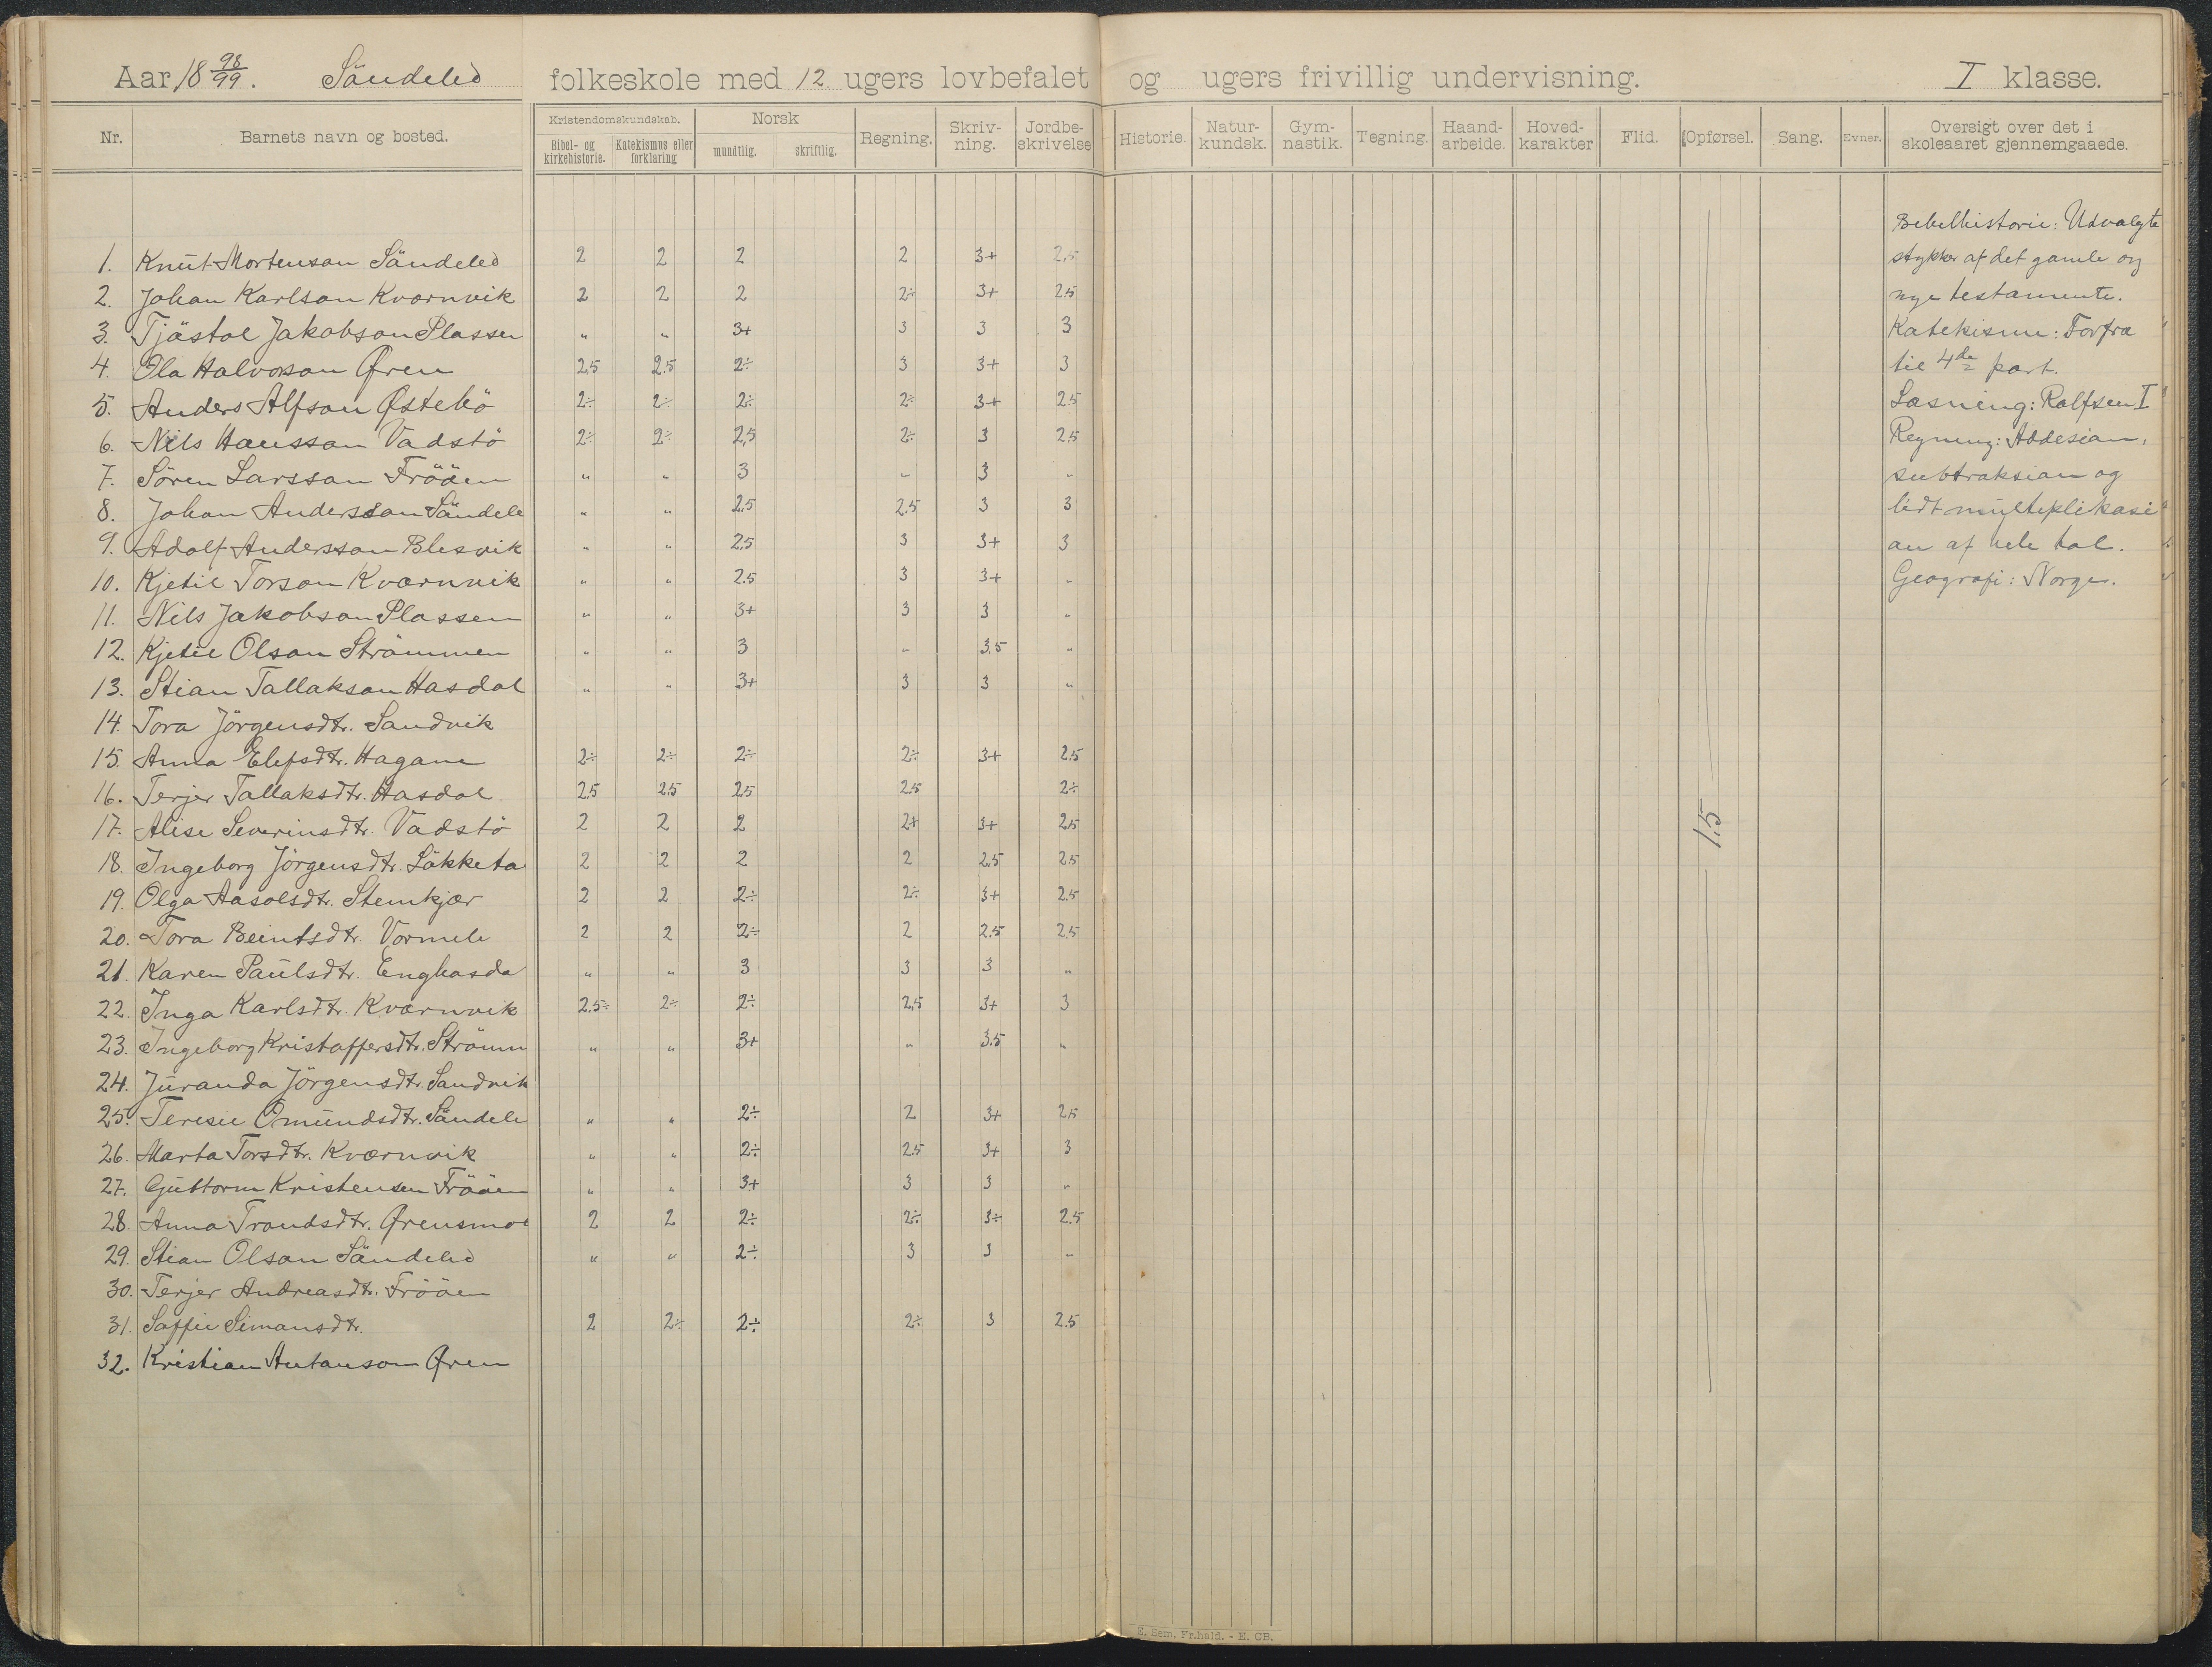 Aar 18 98/99. Söndeled folkeskole med 12 ugers lovbefalet og ugers frivillig undervisning. I klasse.
Nr. Barnets navn og bosted. Kristendomskundskab. Bibel- og kirkehistorie. Katekismus eller forklaring Norsk mundtlig. skriftlig. Regning. Skriv-ning. Jordbe-skrivelse Historie. Natur-kundsk. Gym-nastik. Tegning. Haand-arbeide. Hoved-karakter Flid. Opførsel. Sang. Evner. Oversigt over det i skoleaaret gjennemgaaede.
1. Knut Mortenson Söndeled 2 2 2 2 3+ 2,5
2. Johan Karlson Kværnvik 2 2 2 2÷ 3+ 2.5
3. Tjöstol Jakobson Plassen " " 3+ 3 3 3
4. Ola Halvorson Øren 2,5 2.5 2÷ 3 3+ 3
5. Anders Alfson Østebö 2÷ 2÷ 2÷ 2÷ 3+ 2.5
6. Nils Hansson Vadstö 2÷ 2÷ 2,5 2÷ 3 2.5
7. Sören Larsson Fröäen " " 3 " 3 "
8. Johan Andersson Söndele " " 2,5 2.5 3 3
9. Adolf Andersson Blesvik " " 2,5 3 3+ 3
10. Kjetil Torson Kværnvik " " 2.5 3 3+ "
11. Nils Jakobson Plassen " " 3+ 3 3 "
12. Kjetil Olson Strömmen " " 3 " 3.5 "
13. Stian Tallakson Hasdal " " 3+ 3 3 "
14. Tora Jörgensdtr. Sandvik
15. Anna Elefsdtr. Hagane 2÷ 2÷ 2÷ 2÷ 3+ 2.5
16. Terjer Tallaksdtr. Hasdal 2.5 2.5 2,5 2.5 2÷
17. Alise Severinsdtr. Vadstö 2 2 2 2+ 3+ 2,5
18. Ingeborg Jörgensdtr. Lökketa 2 2 2 2 2,5 2.5
19. Olga Aasolsdtr. Stemkjær 2 2 2÷ 2÷ 3+ 2.5
20. Tora Beintsdtr. Vormeli 2 2 2÷ 2 2.5 2,5
21. Karen Paulsdtr. Enghasda " " 3 3 3 "
22. Inga Karlsdtr. Kværnvik 2.5÷ 2÷ 2÷ 2,5 3+ 3
23. Ingeborg Kristoffersdtr. Strömm " " 3+ " 3.5 "
24. Juranda Jörgensdtr. Sandvik
25. Teresie Omundsdtr. Söndele " " 2÷ 2 3+ 2,5
26. Marta Torsdtr. Kværnvik " " 2÷ 2.5 3+ 3
27. Guttorm Kristensen Fröäen " " 3+ 3 3 "
28. Anna Trondsdtr. Ørensmoe 2 2 2÷ 2÷ 3÷ 2.5
29. Stian Olson Söndeled " " 2÷ 3 3 "
30. Terjer Andreasdtr. Fröäen
31. Soffie Simonsdtr. 2 2÷ 2÷ 2÷ 3 2.5
32. Kristian Antonson Øren
1.5
Bebelhistorie: Udvalgte
stykker af det gamle og
nye testamente.
Katekisme: Forfra
til 4de part.
Læsning: Rolfsen I
Regning: Addesion,
subtraksion og
lidt multeplikasi
on af hele tal.
Geografi: Norge.
E. Sem. Fr.hald. - E. CB.